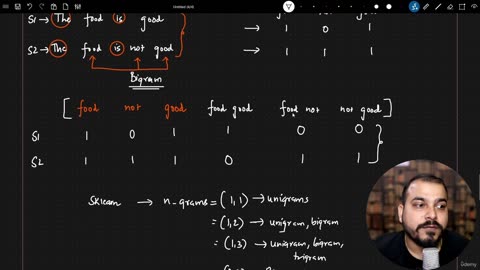 Untitled (Draft)
S1 → The food is good → 1 0 1
S2 → The food is not good → 1 1 1
Bigram
[ food not good food good food not not good ]
S1 1 0 1 1 0 0
S2 1 1 1 0 1 1
Sklearn → n-grams = (1,1) → unigrams
= (1,2) → unigram, bigram
= (1,3) → unigram, bigram,
trigram
Udemy